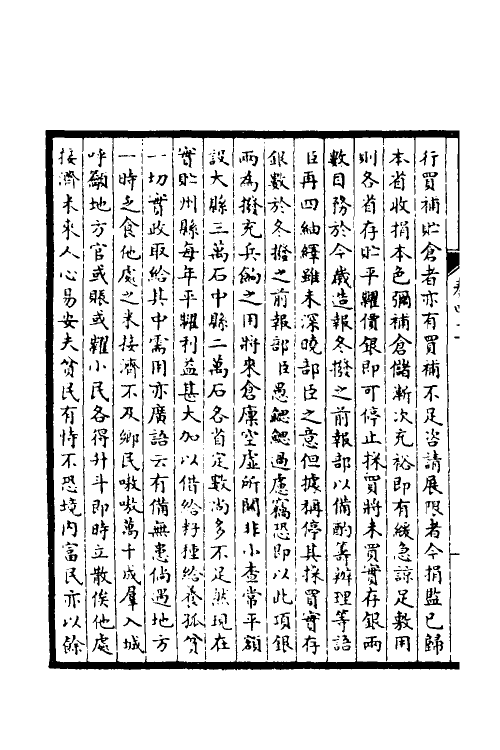 行買補貯倉者亦有買補不足咨請展限者今捐監已歸
本省收捐本色彌補倉儲漸次充裕即有緩急諒足敷用
則各省存貯平糶價銀即可停止採買將未買實存銀兩
數目務於今歲造報冬撥之前報部以備酌籌辦理等語
臣再四紬繹雖未深曉部臣之意但據稱停其採買實存
銀數於冬撥之前報部臣愚鰓鰓過慮竊恐即以此項銀
兩為撥充兵餉之用將來倉廩空虛所關非小查常平額
設大縣三萬石中縣二萬石各省定數尚多不足然現在
實貯州縣每年平糶利益甚大加以借給籽種給養孤貧
一切實政取給其中需用亦廣語云有備無患倘遇地方
一時乏食他處之米接濟不及鄉民嗷嗷萬十成羣入城
呼籲地方官或賑或糶小民各得升斗即時立散俟他處
接濟米來人心易安夫貧民有恃不恐境内富民亦以餘
卷四二